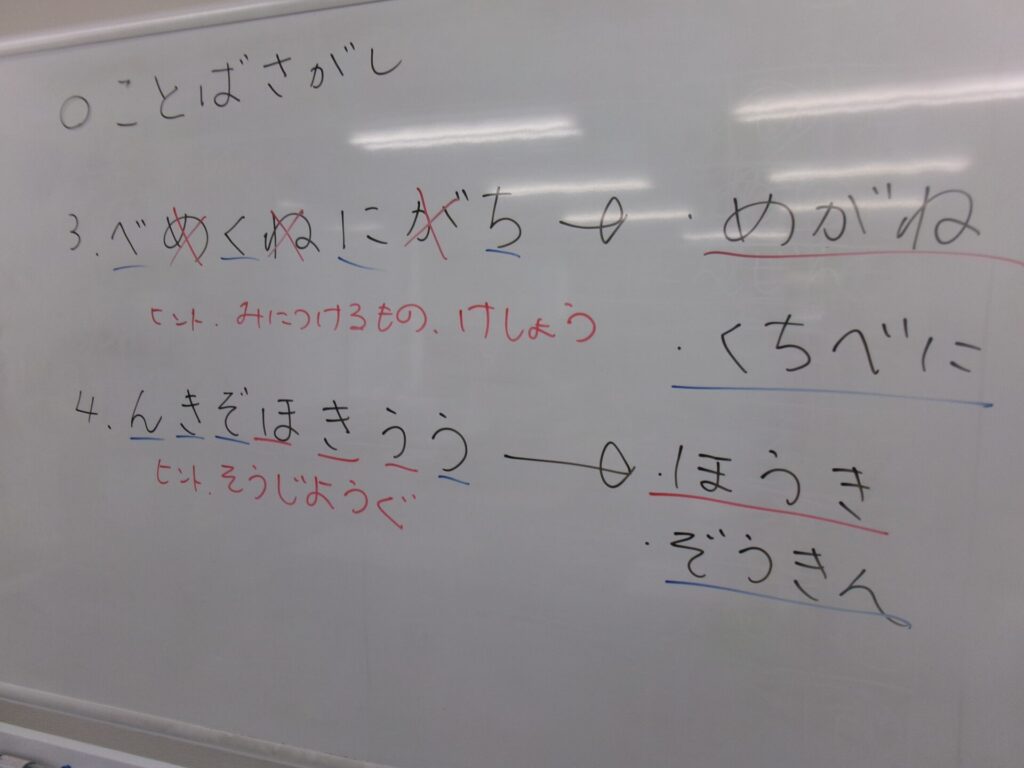 ○ことばさがし
3.べめくねにがち → ・めがね
ヒント.みにつけるもの、けしょう
・くちべに
4.んきぞほきうう → ・ほうき
ヒント.そうじようぐ
・ぞうきん